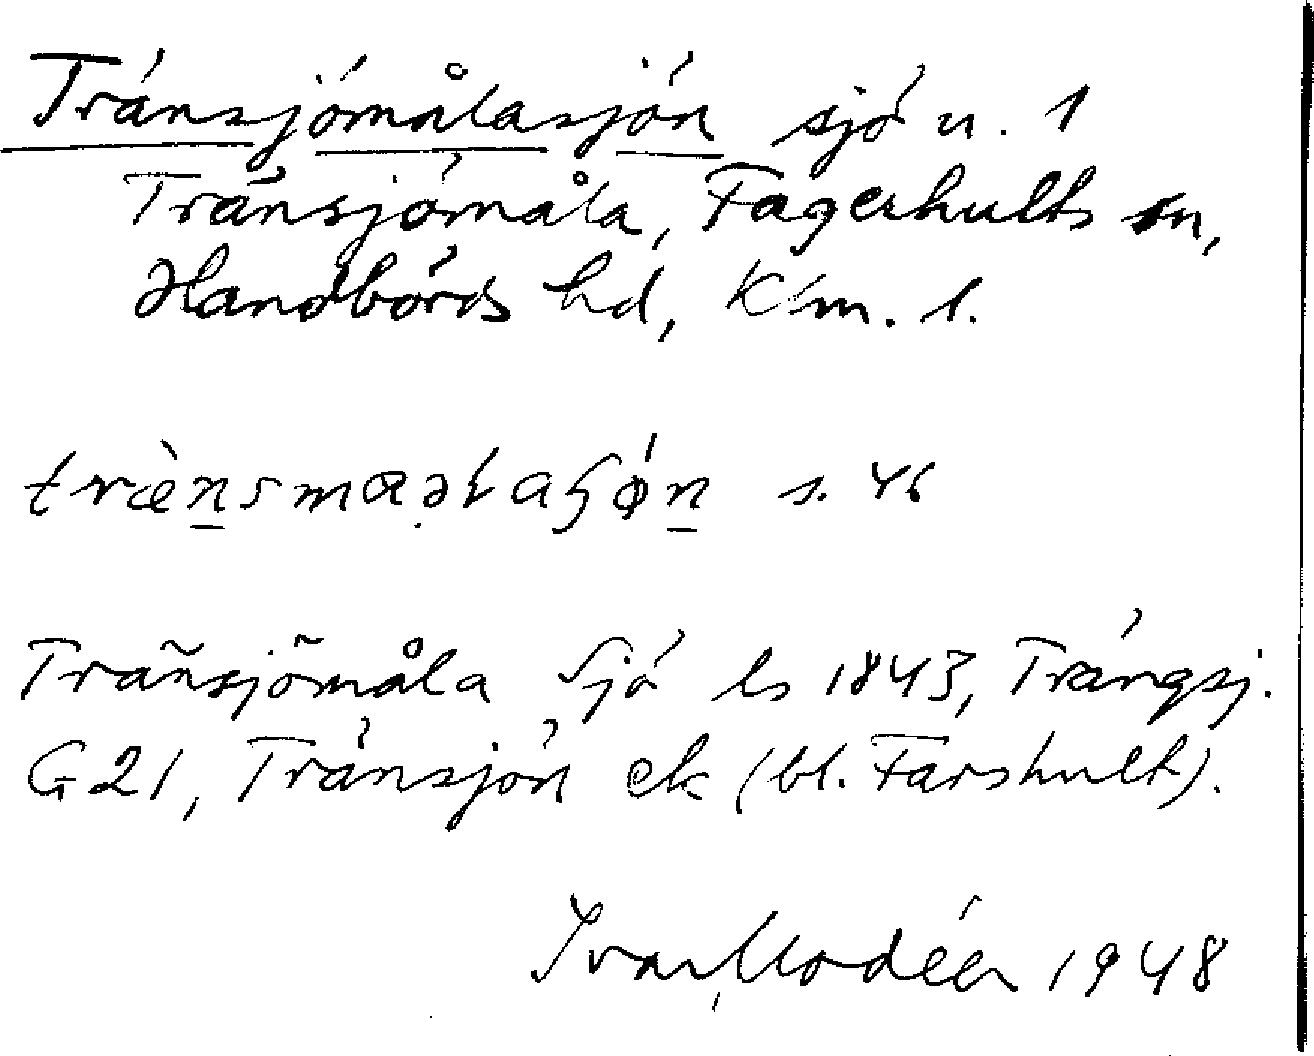 Tränsjömålasjön sjö n. 1
Tränsjömåla, Fagerhults sn,
Handbörds hd, Klm. l.
træ̀nsmaəlaʃǿn s. 46
Tränsjömåla Sjö ls 1843, Trängsj.
G21, Tränsjön ek (bl. Farshult).
Ivar Modéer 1948